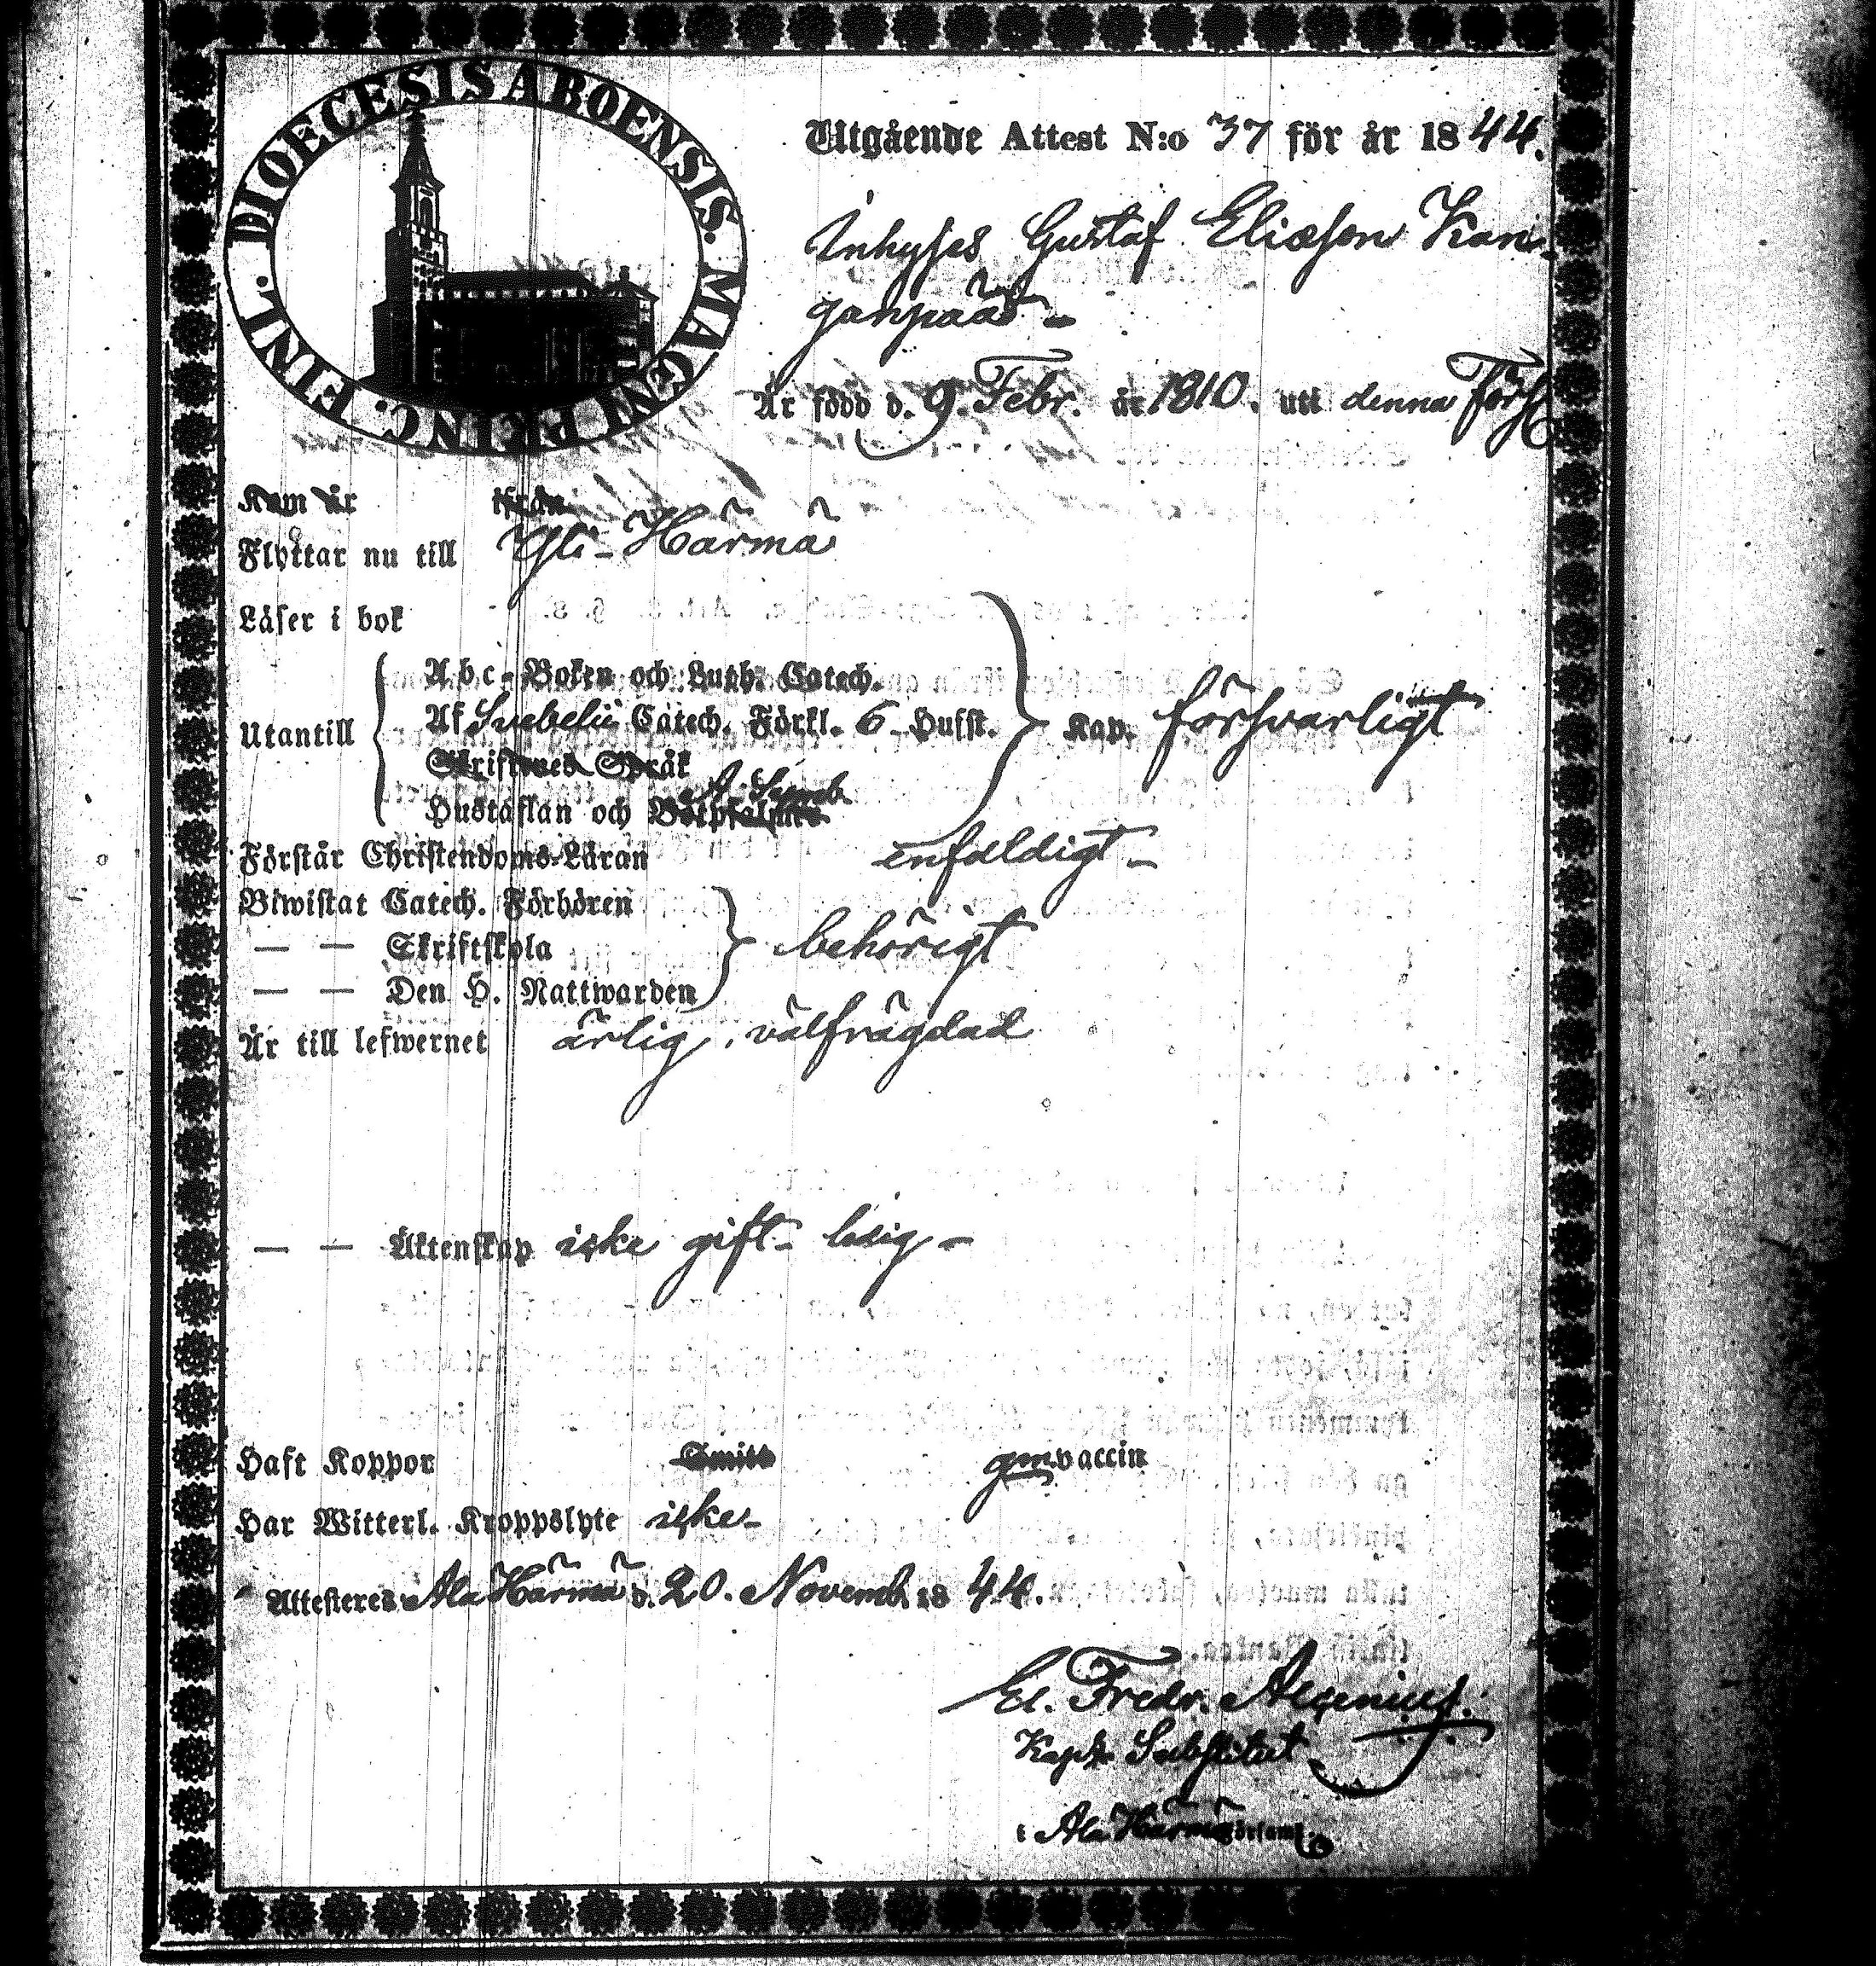 DIOECESIS ABOENSIS. MAGNI PRINC. FINL.
Utgående Attest N:o 37 för år 1844.
Inhyses Gustaf Eliæson Kan-
ganpää -
Är född d. 9. Febr. år 1810. uti denna Förs.
Kom år ifrån
Flyttar nu till Yli-Härmä
Läser i bok
Utantill
Abc-Boken och Luth. Catech.
Af Svebelii Catech. Förkl. 6 Hufst.
Skriftenes Språk
Hustaflan och Botpsalmer A. Symb.
Kap. försvarligt
Förstår Christendoms-Läran enfaldigt -
Biwistat Catech. Förhören
— — Skriftskola
— — Den H. Nattwarden
behörigt
Är till lefwernet ärlig, välfrägdad
— — Äktenskap icke gift - ledig -
Haft Koppor Smitt gm vaccin
Har Witterl. Kroppslyte icke -
Attesteras Ala Härmä d. 20. Novemb. 1844.
El. Fredr. Alcenius.
Kapls Substitut
i Ala Härmä Förfaml.